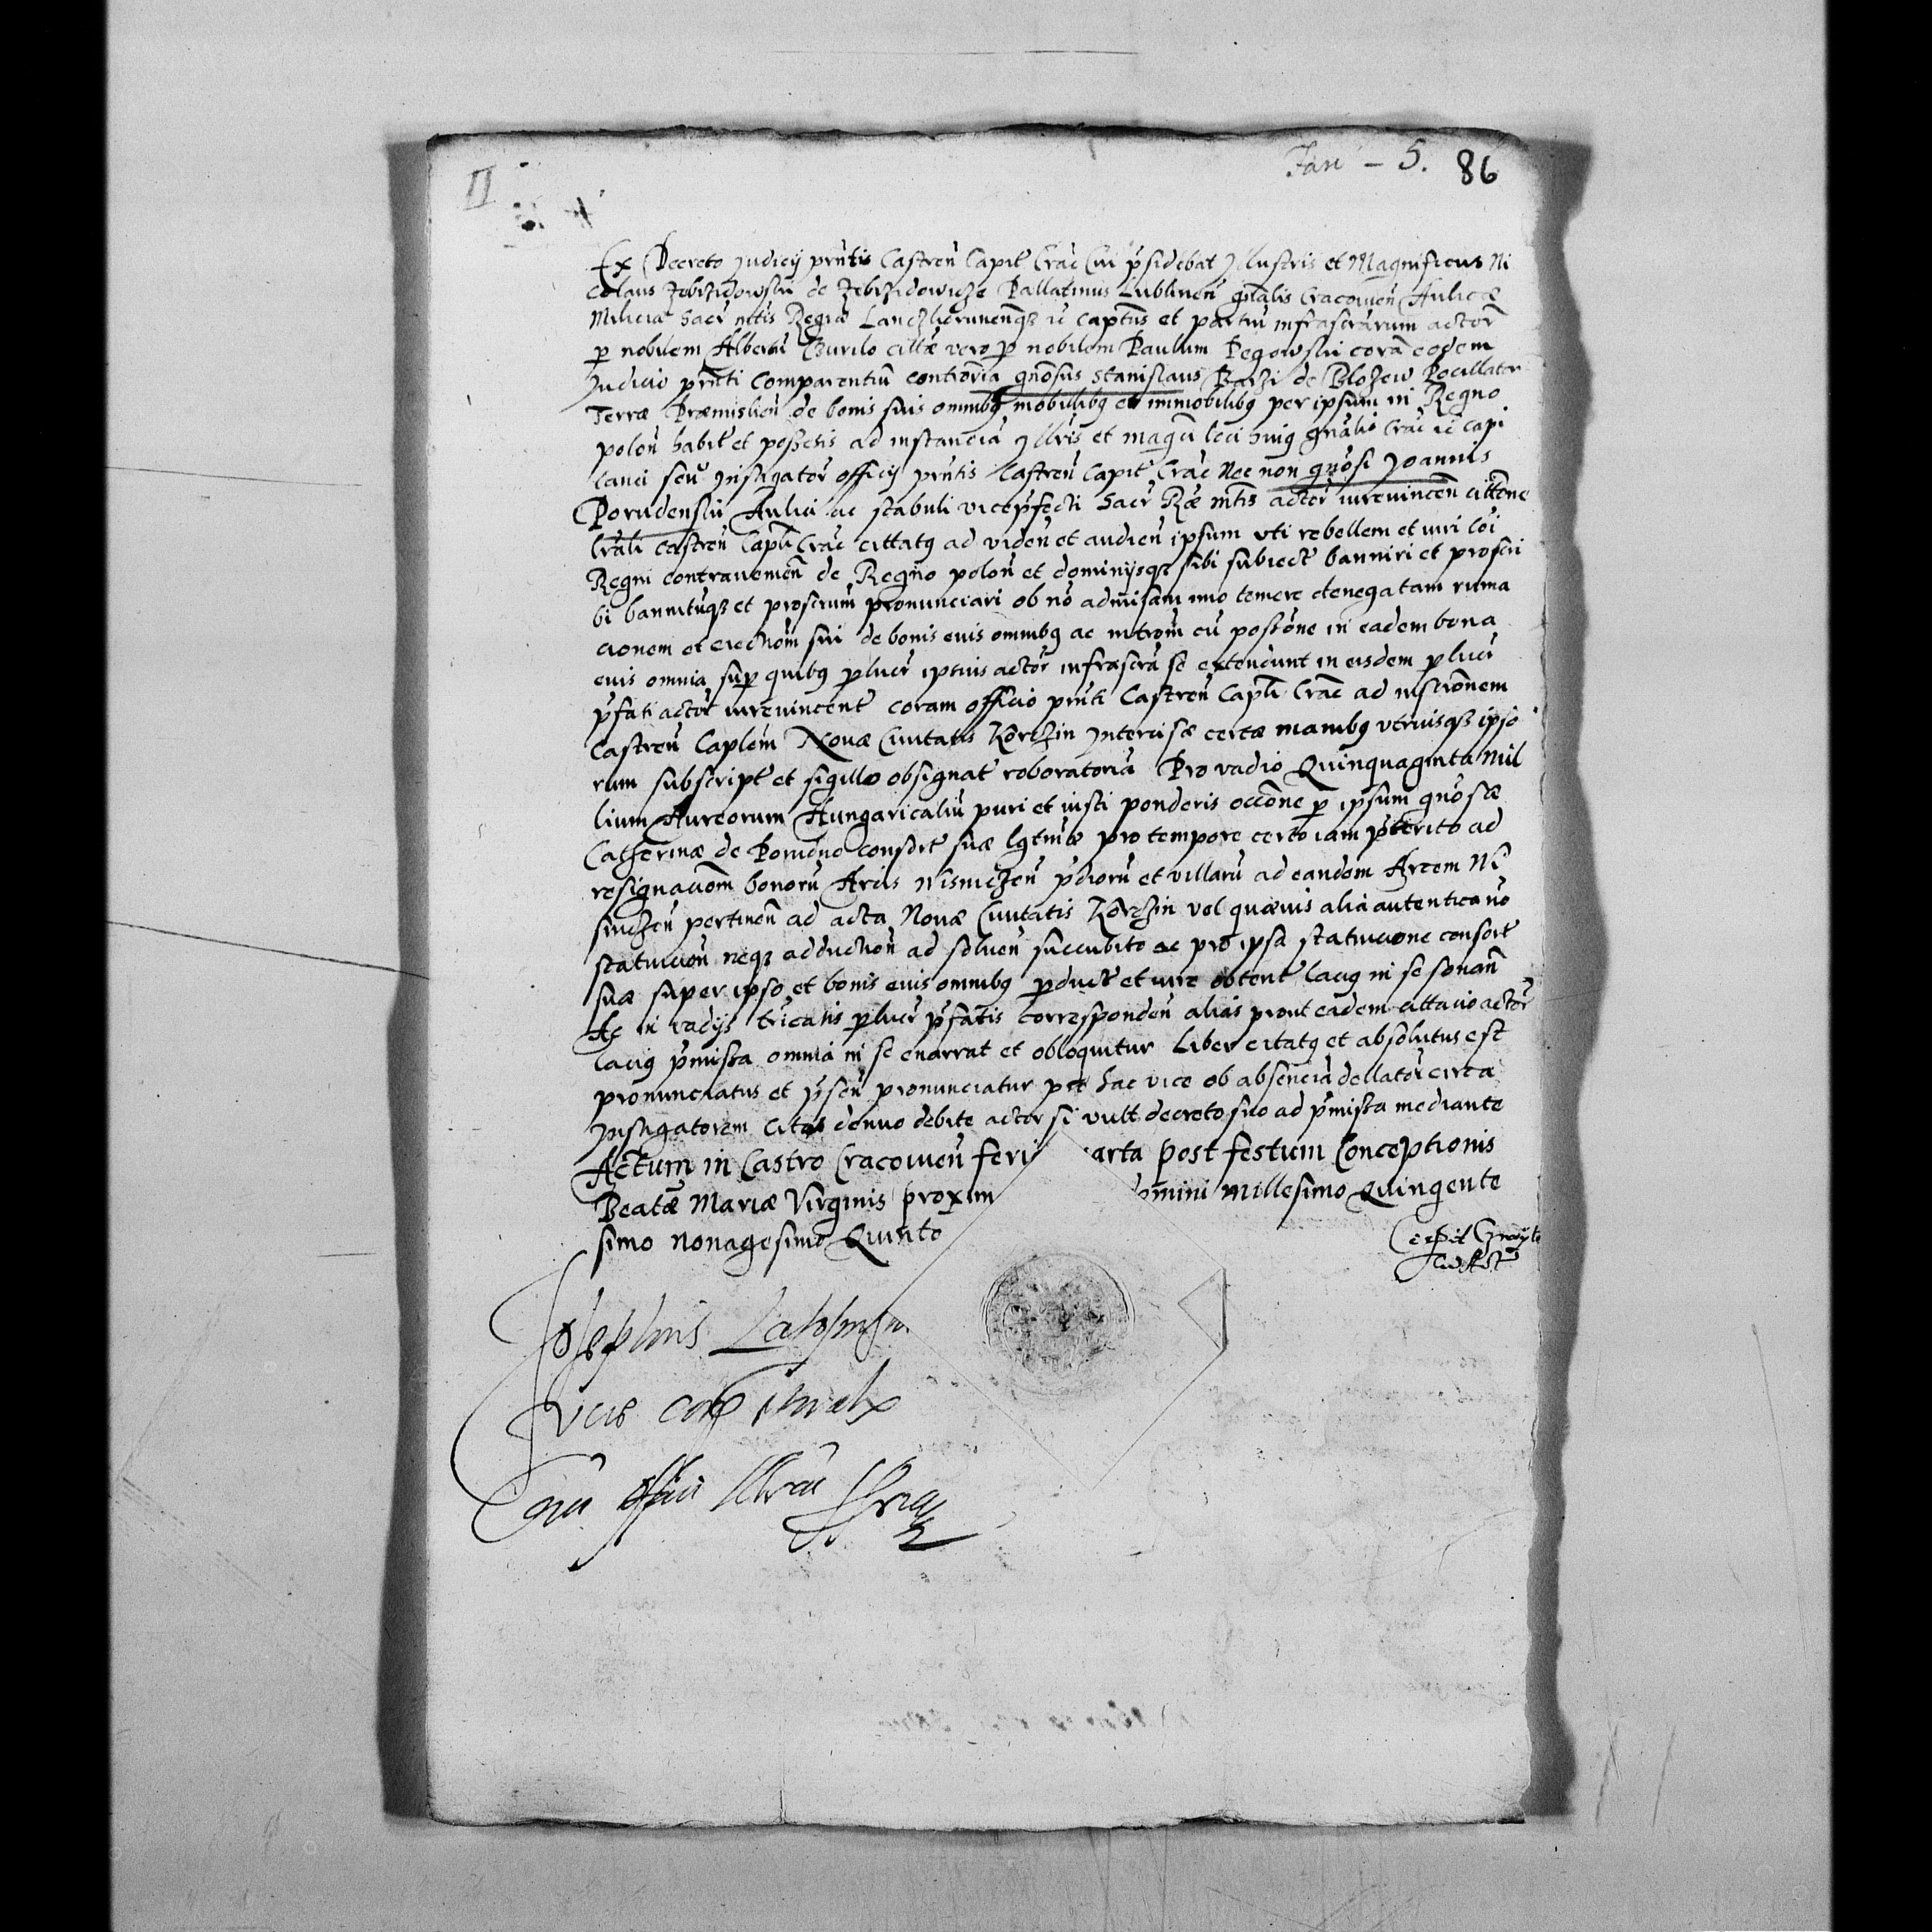 II
Jari - 5. 86
Ex Decreto Judicij pñtis Castreñ Capit Crac Cui p̃sidebat Jllustris et Magnificus Ni
colaus Zebrzidowski de Zebrzidowicze Pallatinus Lublineñ gñalis Cracouieñ Aulicæ
Miliciæ Sacr mtis Regiæ Lanczkorunenqz et captus et partiũ infrascrarum actor
p nobilem Albertũ Burilo cittæ vero p nobilem Paulum Pegowski corã eodem
Judicio pñti Comparentiũ contiouia gñosus Stanislaus Barzi de Blozew Pocillator
Terræ Præmislieñ de bonis suis omnibq mobilibq et immobilibq per ipsum in Regno
poloñ habit et possesis ad instancia Jllris et magci loci huiq gñalis Crac et Capi
lanei seu Jnstigator officij pñtis Castreñ Capit Crac Nec non gñosi Joannis
Porudenski Aulici ac stabuli vicep̃fecti Sacr Ræ mtis actor iureuinceñ cittõne
lrali castreñ Capli Crac cittatq ad videñ et audieñ ipsum vti rebellem et iuri cõi
Regni contrauenieñ de Regno poloñ et dominijsqz sibi subiect banniri et proscri
bi bannituqz et proscrium pronunciari ob nõ admissam imo temere denegatam ruma
cionem et eiectiom sui de bonis euis omnibq ac introm cũ possõne in eadem bona
euis omnia sup quibq plucr ipsius actor infrascra se extendunt in eisdem plucr
p̃fati actor iureuincent coram officio pñti Castreñ Capli Crac ad inscrionem
Castreñ Caplem Nouæ Ciuitatis Korczin Jntercisæ certæ manibq vtriusqz ipso
rum subscript et sigillo obsignat roboratoria Pro vadio Quinquaginta mil
lium Aureorum Hungaricaliũ puri et iusti ponderis occõne p ipsum gñosæ
Catherinæ de Porudno consort suæ lgtimæ pro tempore certo iam p̃terito ad
resignacom bonorũ Arcis Wisniczeñ p̃dioru et villarũ ad eandem Arcem Wi
sniczeñ pertineñ ad acta Nouæ Ciuitatis Korczin vel quæuis alia autentica nõ
statuicoñ neqz adductioñ ad solueñ succubito ac pro ipsa statuicione consort
suæ super ipso et bonis euis omnibq pduct et iure obtent laciq in se sonañ
Ac in vadijs tricatis plucr p̃fatis correspondeñ alias prout eadem cittacio actor
laciq p̃missa omnia in se enarrat et obloquitur Liber citatq et absolutus est
pronunciatus et p̃señ pronunciatur pro hac vice ob absencia dellatoũ circa
Jnstigatorem Citet denuo debite actor si vult decreto suo ad p̃missa mediante
Actum in Castro Cracouieñ feri arta post festum Conceptionis
Beatæ Mariæ Virginis proxim omini Millesimo Quingente
simo nonagesimo Quinto
Josephus